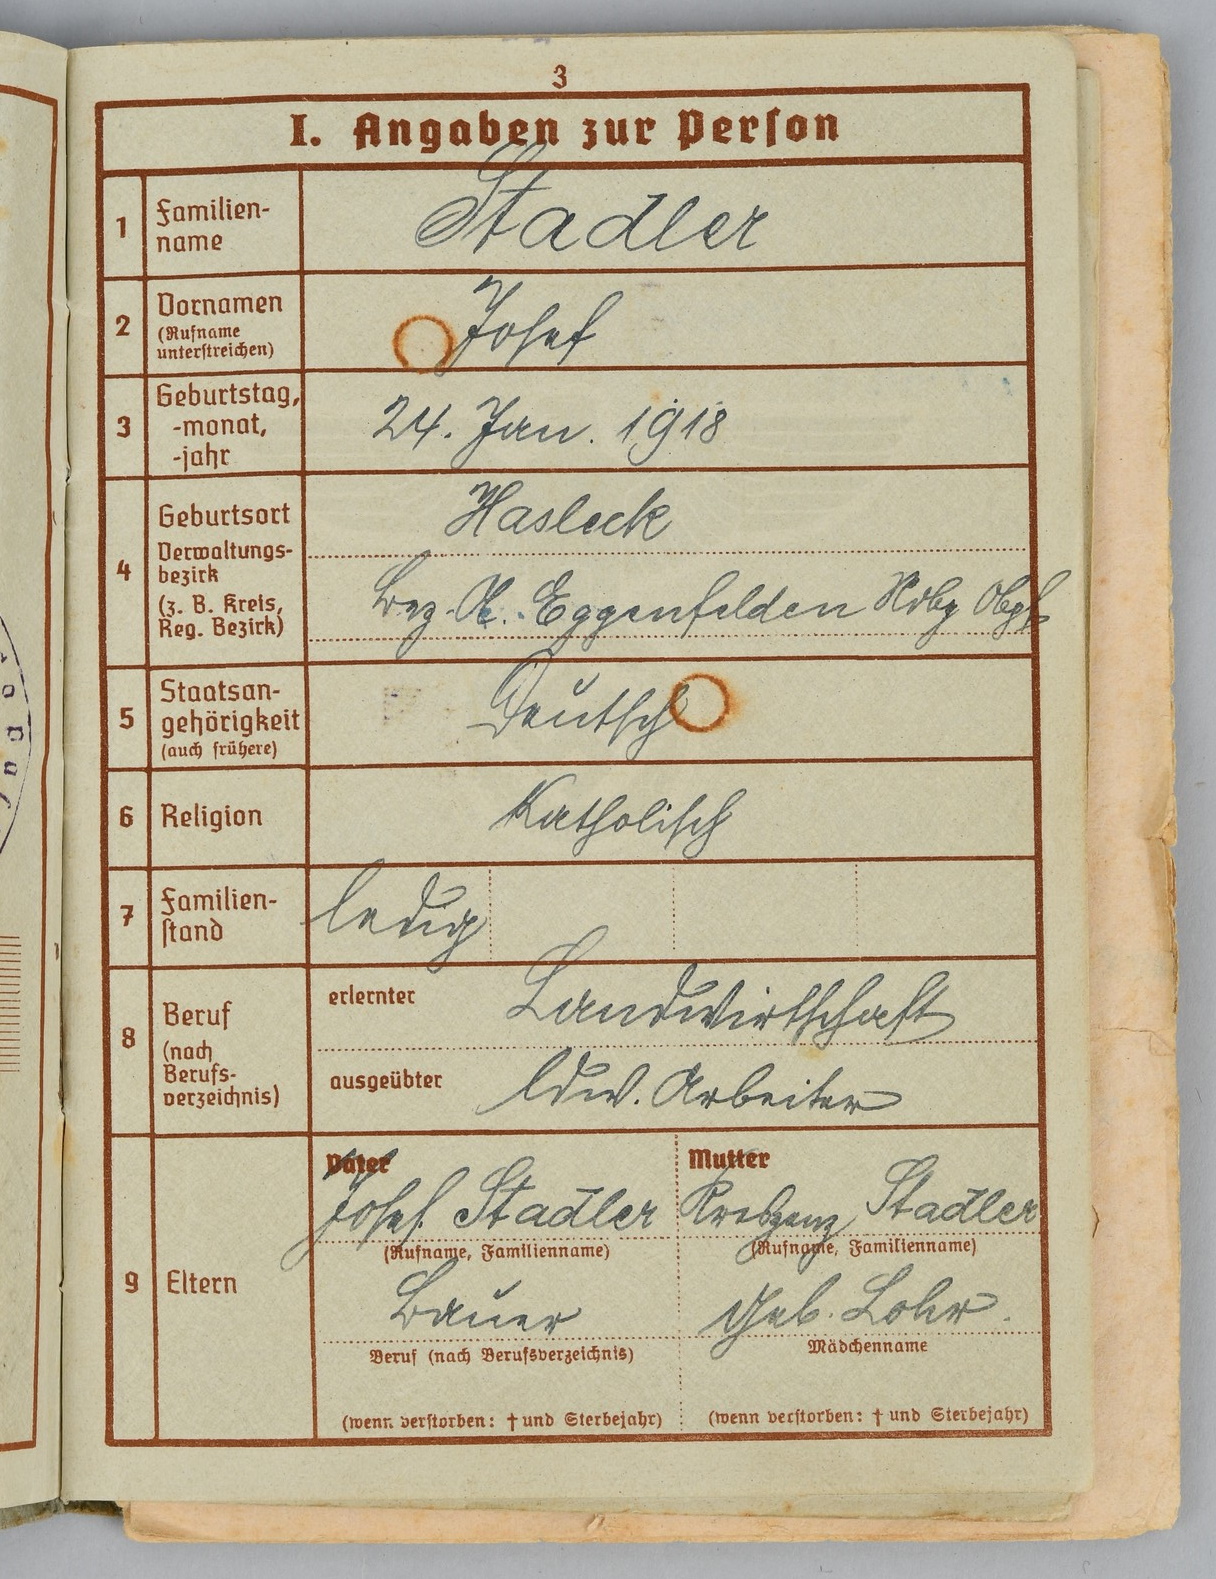 3
I. Angaben zur Person
1
Familien-
name
Stadler
2
Vornamen
(Rufname
unterstreichen)
Josef
3
Geburtstag,
-monat,
-jahr
24. Jan. 1918
4
Geburtsort
Hasleck
Verwaltungs-
bezirk
(z. B. Kreis,
Reg. Bezirk)
Bez. A. Eggenfelden Ndby Obpf
5
Staatsan-
gehörigkeit
(auch frühere)
Deutsch
6
Religion
Katholisch
7
Familien-
stand
ledig
8
Beruf
(nach
Berufs-
verzeichnis)
erlernter
Landwirtschaft
ausgeübter
ldw. Arbeiter
9
Eltern
Vater
Josef Stadler
(Rufname, Familienname)
Bauer
Beruf (nach Berufsverzeichnis)
(wenn verstorben: † und Sterbejahr)
Mutter
Kreszenz Stadler
(Rufname, Familienname)
geb. Lohr.
Mädchenname
(wenn verstorben: † und Sterbejahr)